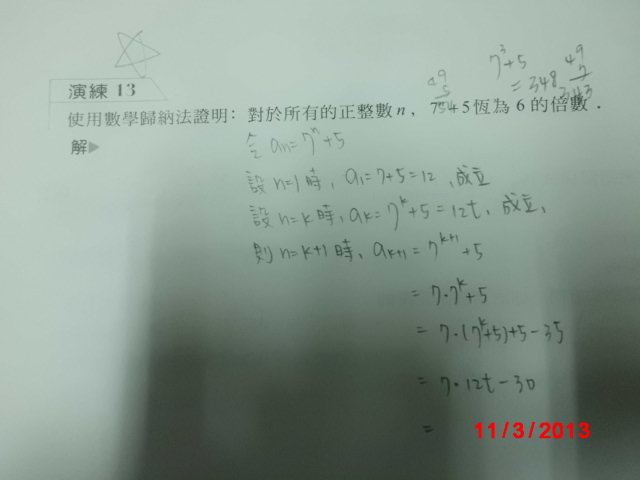 7³+5
= 348
49
7
343
49
5
54
演練 13
使用數學歸納法證明：對於所有的正整數 n，7ⁿ+5 恆為 6 的倍數．
解▶
令 an=7ⁿ+5
設 n=1 時, a₁=7+5=12, 成立
設 n=k 時, ak=7ᵏ+5=12t, 成立,
則 n=k+1 時, ak+1=7ᵏ⁺¹+5
= 7·7ᵏ+5
= 7·(7ᵏ+5)+5-35
= 7·12t-30
=
11/3/2013